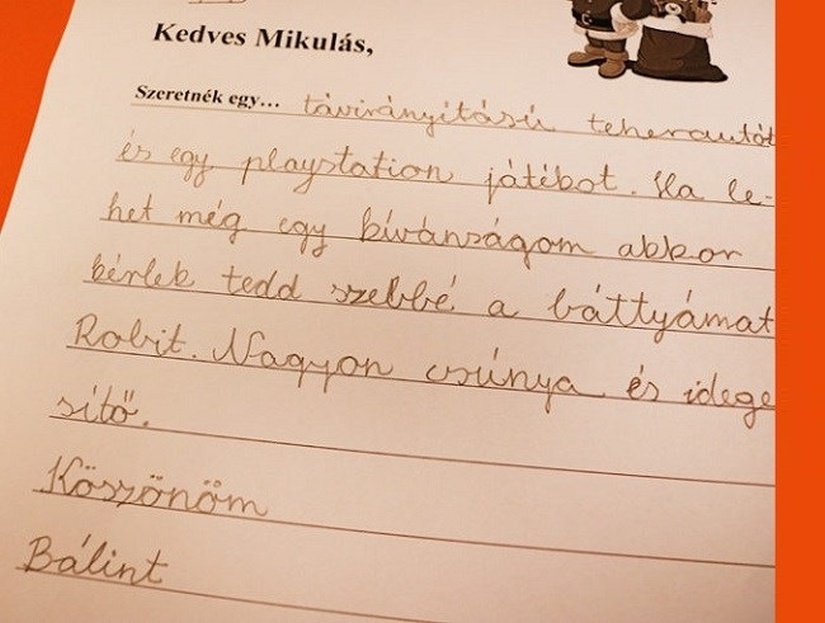 Kedves Mikulás,
Szeretnék egy... távirányítású teherautót
és egy playstation játékot. Ha le-
het még egy kívánságom akkor
kérlek tedd szebbé a báttyámat
Robit. Nagyon csúnya és idege
sítő.
Köszönöm
Bálint